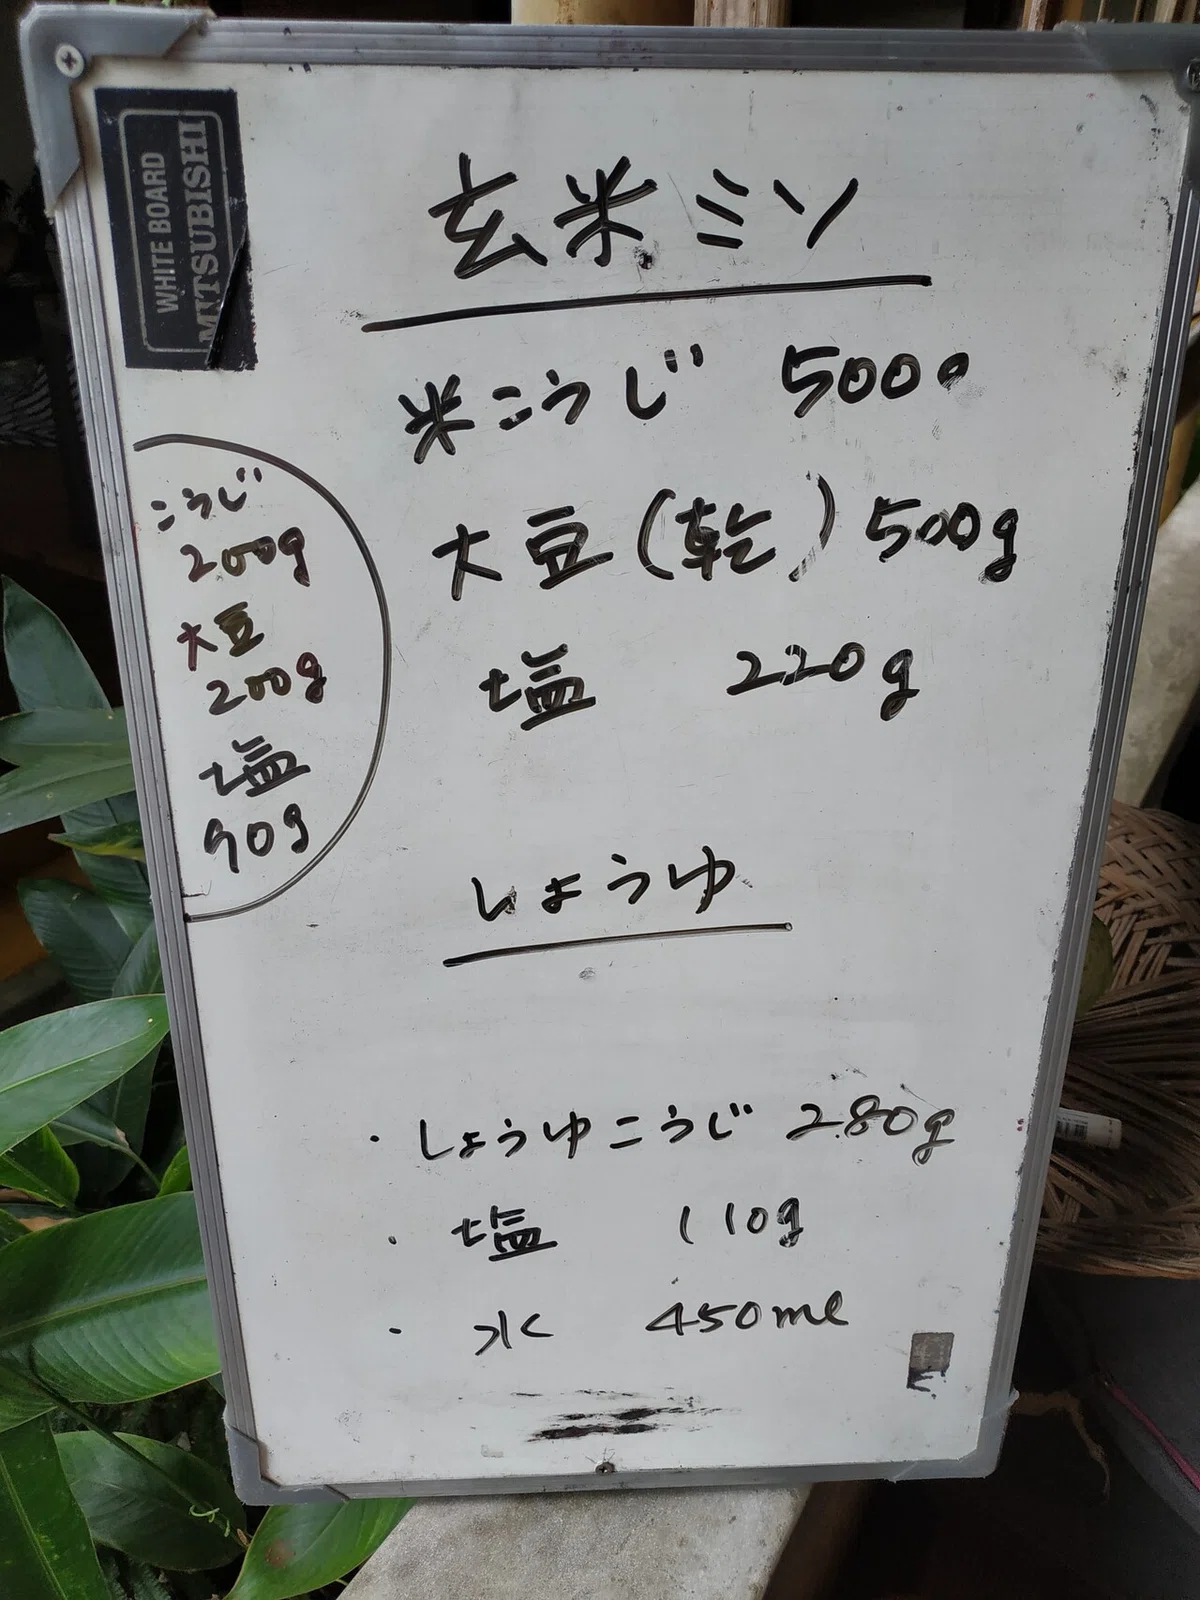 WHITE BOARD
MITSUBISHI
玄米ミソ
米こうじ 500g
大豆(乾) 500g
塩 220g
こうじ
200g
大豆
200g
塩
90g
しょうゆ
・しょうゆこうじ 280g
・塩 110g
・水 450ml